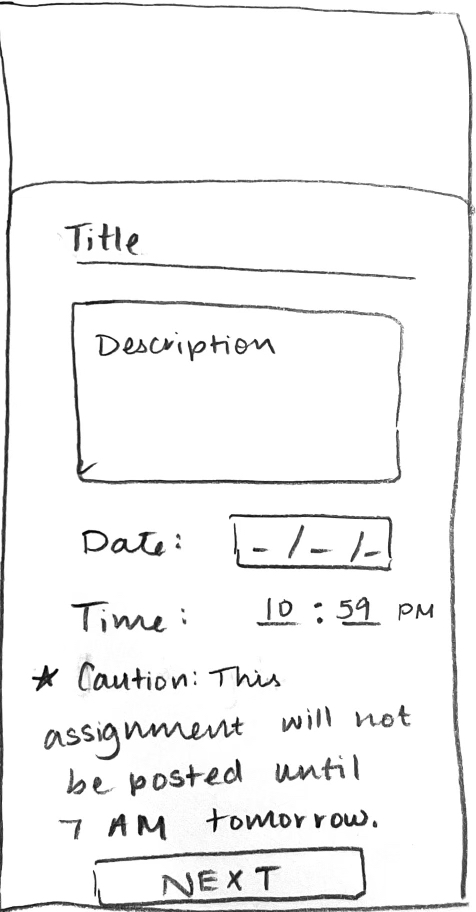 Title
Description
Date: _ / _ / _
Time: 10 : 59 PM
* Caution: This
assignment will not
be posted until
7 AM tomorrow.
NEXT